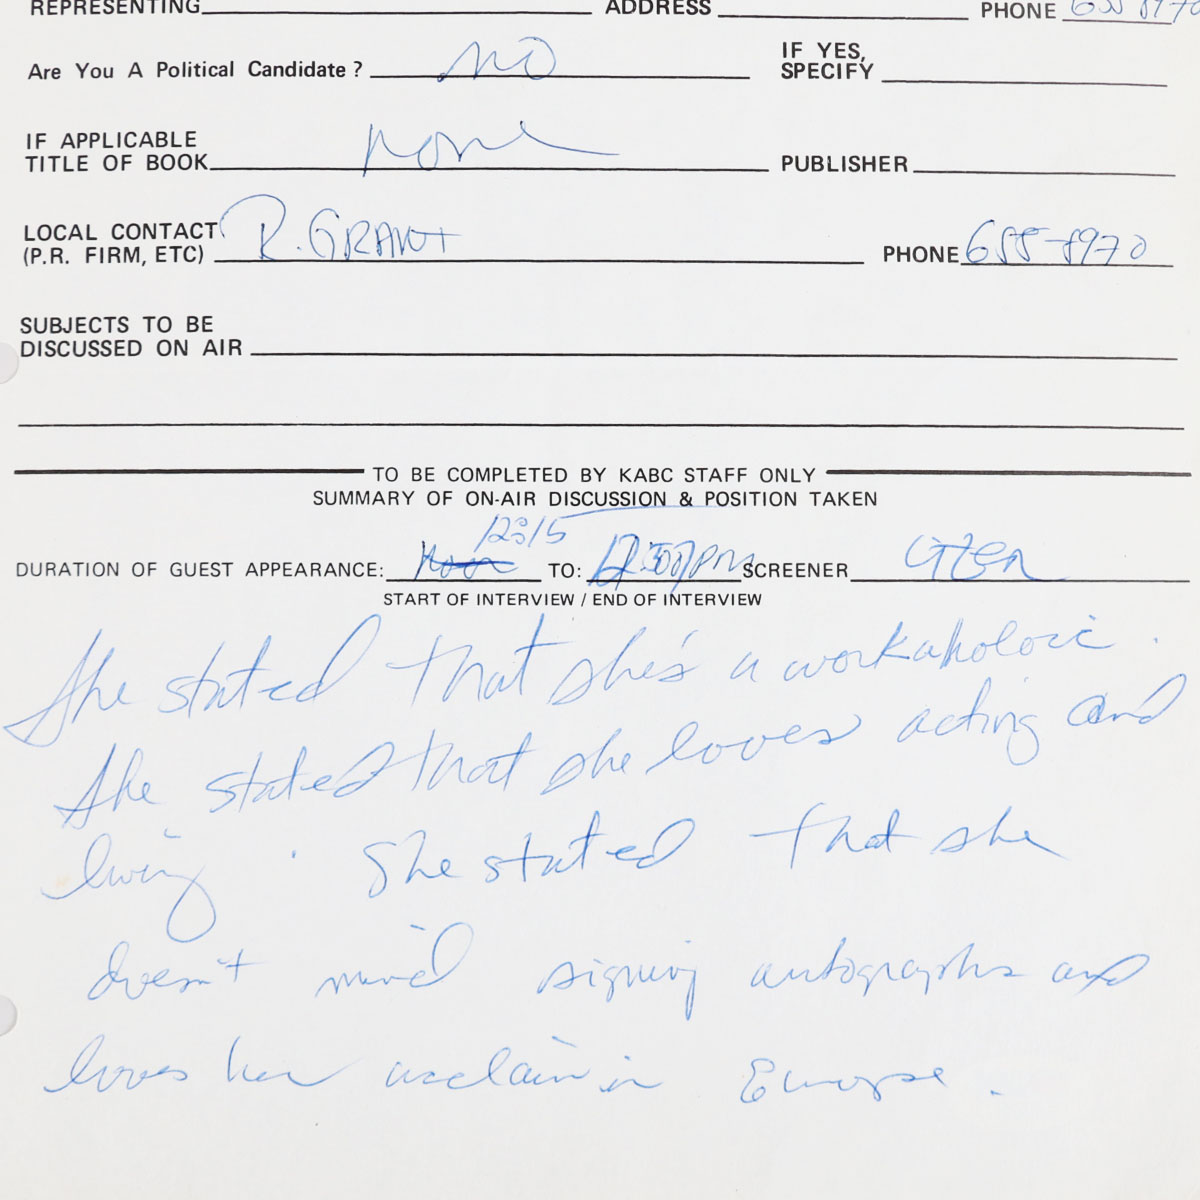 REPRESENTING ADDRESS PHONE 655 8970
Are You A Political Candidate? no IF YES, SPECIFY
IF APPLICABLE
TITLE OF BOOK none PUBLISHER
LOCAL CONTACT
(P.R. FIRM, ETC) R. GRANT PHONE 655-8970
SUBJECTS TO BE
DISCUSSED ON AIR
TO BE COMPLETED BY KABC STAFF ONLY
SUMMARY OF ON-AIR DISCUSSION & POSITION TAKEN
DURATION OF GUEST APPEARANCE: 12:15 TO: SCREENER
START OF INTERVIEW / END OF INTERVIEW
She stated that she's a workaholoic.
She stated that she loves acting and
living. She stated that she
doesn't mind signing autographs and
loves her acclaim in Europe.